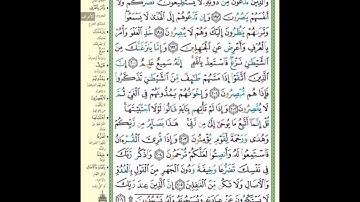 وَالَّذِينَ تَدْعُونَ مِن دُونِهِ لَا يَسْتَطِيعُونَ نَصْرَكُمْ وَلَا
أَنفُسَهُمْ يَنصُرُونَ ۝ وَإِن تَدْعُوهُمْ إِلَى الْهُدَىٰ لَا يَسْمَعُوا
وَتَرَاهُمْ يَنظُرُونَ إِلَيْكَ وَهُمْ لَا يُبْصِرُونَ ۝ خُذِ الْعَفْوَ وَأْمُرْ
بِالْعُرْفِ وَأَعْرِضْ عَنِ الْجَاهِلِينَ ۝ وَإِمَّا يَنزَغَنَّكَ مِنَ
الشَّيْطَانِ نَزْغٌ فَاسْتَعِذْ بِاللَّهِ إِنَّهُ سَمِيعٌ عَلِيمٌ ۝ إِنَّ
الَّذِينَ اتَّقَوْا إِذَا مَسَّهُمْ طَائِفٌ مِّنَ الشَّيْطَانِ تَذَكَّرُوا
فَإِذَا هُم مُّبْصِرُونَ ۝ وَإِخْوَانُهُمْ يَمُدُّونَهُمْ فِي الْغَيِّ ثُمَّ
لَا يُقْصِرُونَ ۝ وَإِذَا لَمْ تَأْتِهِم بِآيَةٍ قَالُوا لَوْلَا اجْتَبَيْتَهَا
قُلْ إِنَّمَا أَتَّبِعُ مَا يُوحَىٰ إِلَيَّ مِن رَّبِّي هَٰذَا بَصَائِرُ مِن رَّبِّكُمْ
وَهُدًى وَرَحْمَةٌ لِّقَوْمٍ يُؤْمِنُونَ ۝ وَإِذَا قُرِئَ الْقُرْآنُ
فَاسْتَمِعُوا لَهُ وَأَنصِتُوا لَعَلَّكُمْ تُرْحَمُونَ ۝ وَاذْكُر رَّبَّكَ
فِي نَفْسِكَ تَضَرُّعًا وَخِيفَةً وَدُونَ الْجَهْرِ مِنَ الْقَوْلِ بِالْغُدُوِّ
وَالْآصَالِ وَلَا تَكُن مِّنَ الْغَافِلِينَ ۝ إِنَّ الَّذِينَ عِندَ رَبِّكَ
لَا يَسْتَكْبِرُونَ عَنْ عِبَادَتِهِ وَيُسَبِّحُونَهُ وَلَهُ يَسْجُدُونَ ۝